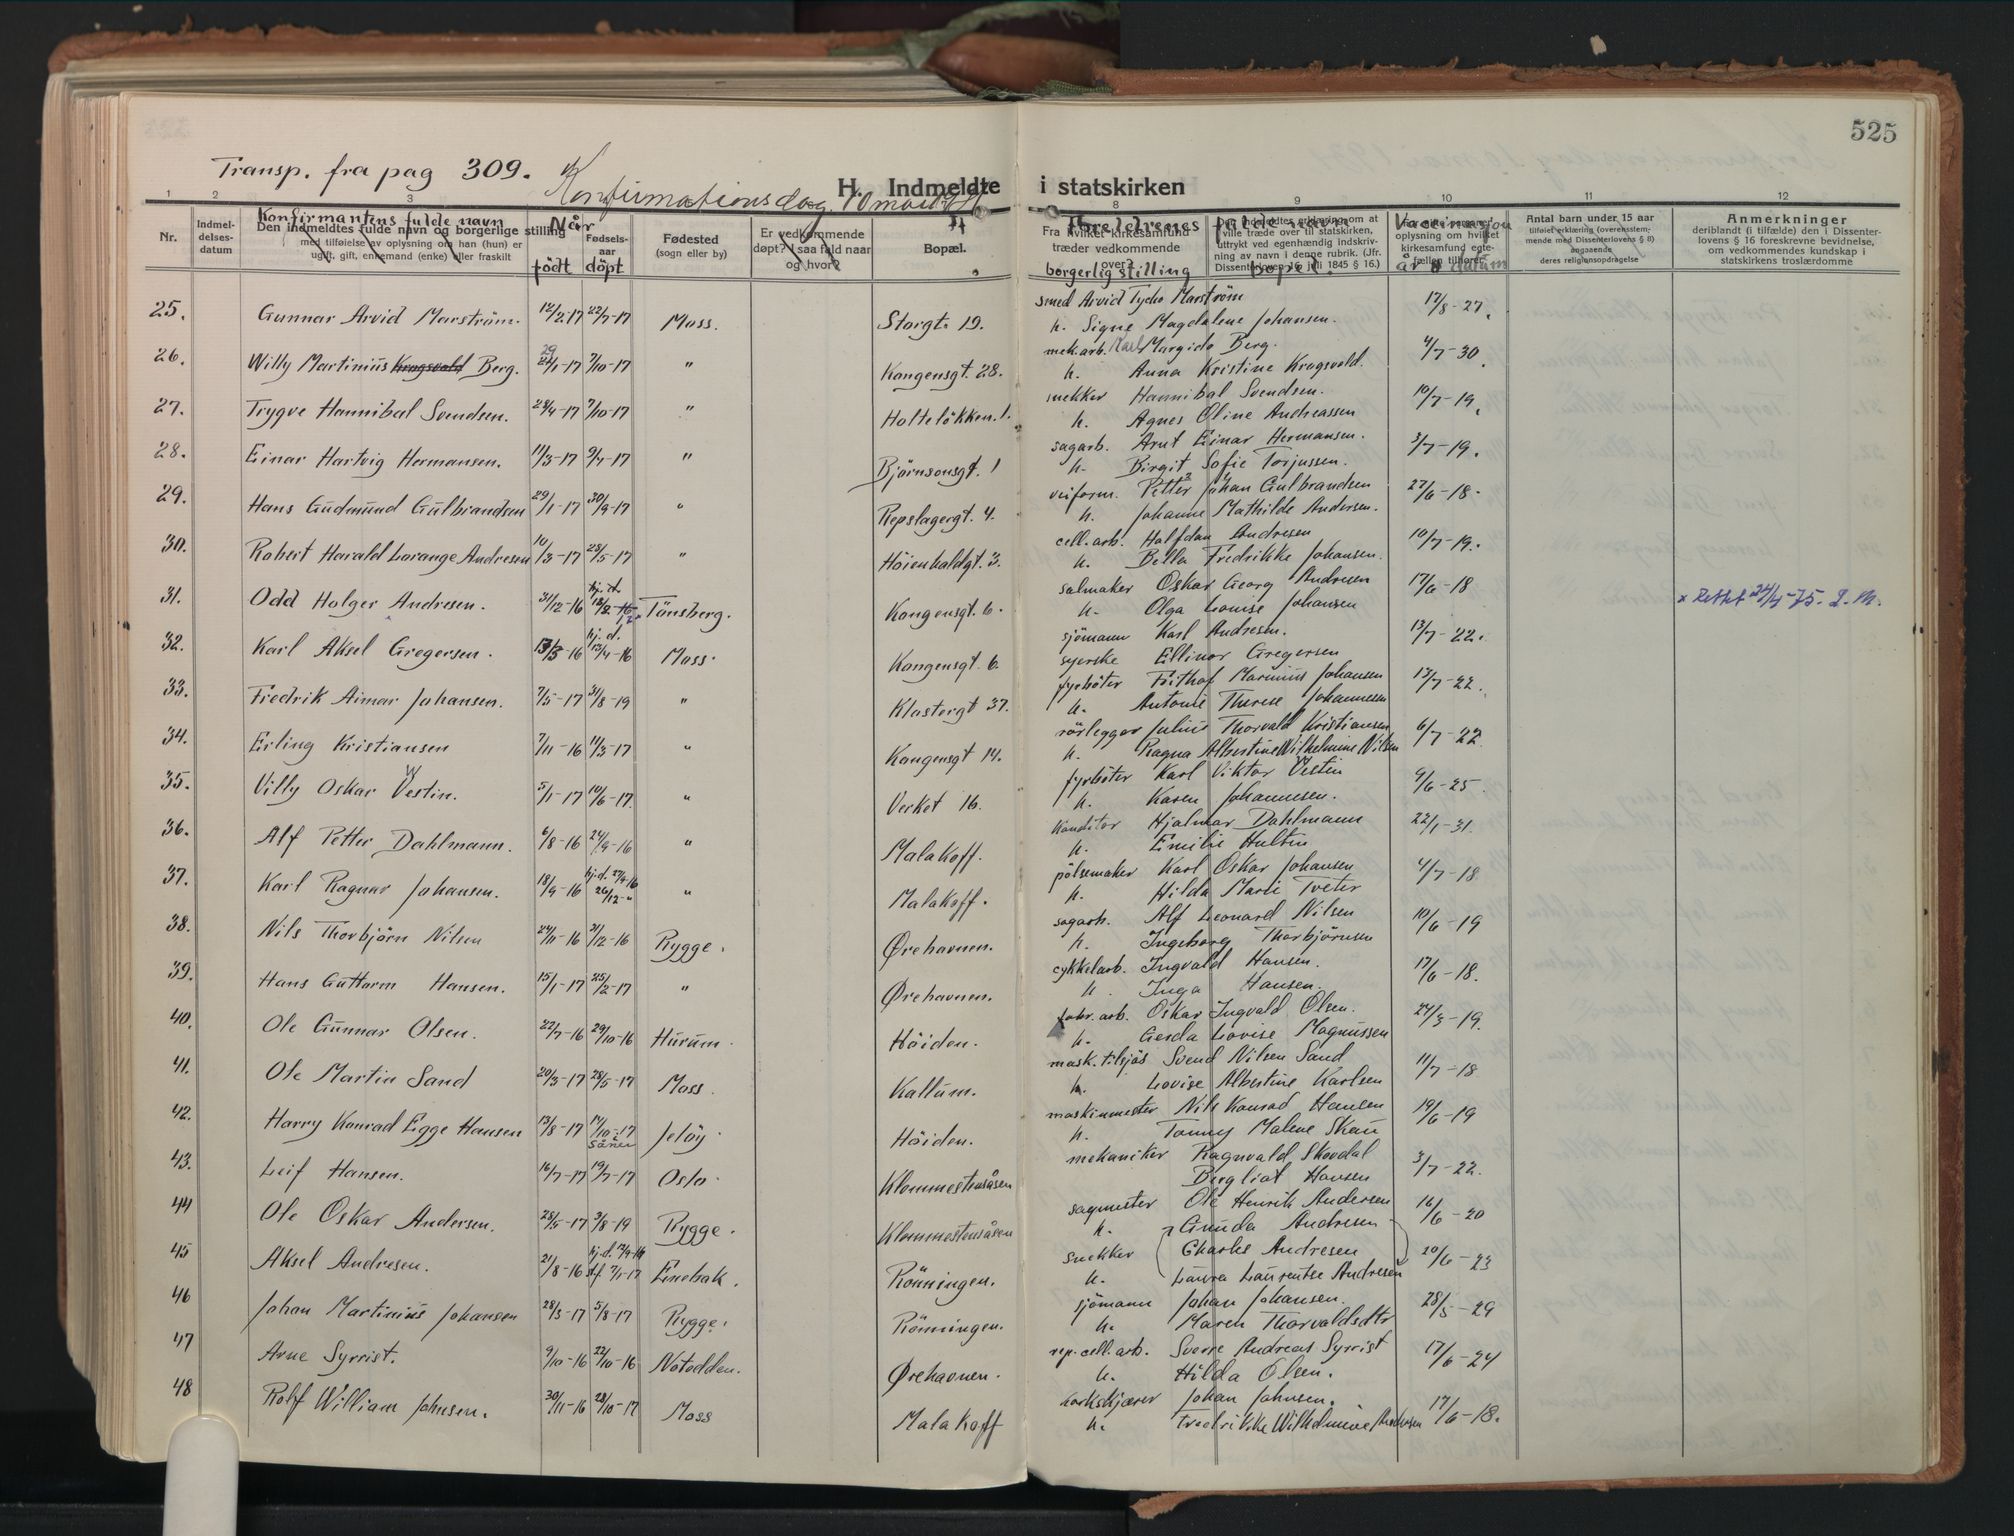 525
Transp. fra pag 309.
Konfirmationsdag 10 mai
H. Indmeldte i statskirken
1 2 3 8 9 10 11 12
Nr.
Indmeldelsesdatum
Konfirmantens fulde navn
Den indmeldtes fulde navn og borgerlige stilling
med tilføielse av oplysning om han (hun) er
ugift, gift, enkemand (enke) eller fraskilt
Når
født
Fødselsaar
döpt
Fødested
(sogn eller by)
Er vedkommende
døpt? I saa fald naar
og hvor?
Bopæl.
Foreldrenes fulde navn
Fra hvilket kirkesamfund
træder vedkommende
over?
borgerlig stilling
bopel.
Den indmeldtes erklæring om at
ville træde over til statskirken,
uttrykt ved egenhændig indskrivning av navn i denne rubrik. (Jfr.
Dissenterloven 16 juli 1845 § 16.)
Vaccinasjon
oplysning om hvilket
kirkesamfund egtefællen tilhører
år & datum
Antal barn under 15 aar
tilføiet erklæring (overensstemmende med Dissenterlovens § 8)
angaaende
deres religionsopdragelse
Anmerkninger
deriblandt (i tilfælde) den i Dissenterlovens § 16 foreskrevne bevidnelse,
om vedkommendes kundskap i
statskirkens troslærdomme
25. Gunnar Arvid Marström. 12/2-17 22/7-17 Moss. Storgt. 19. smed Arvid Tycho Marström 17/8-27.
h. Signe Magdalene Johansen.
26. Willy Martinius Krogsvold Berg. 29/1-17 7/10-17 " Kongensgt. 28. mek.arb. Karl Margido Berg. 4/7-30.
h. Anna Kristine Krogsvold.
27. Trygve Hannibal Svendsen. 24/4-17 7/10-17 " Holteløkken 1. snekker Hannibal Svendsen. 10/7-19.
h. Agnes Oline Andreassen
28. Einar Hartvig Hermansen. 11/3-17 9/4-17 " Bjørnsonsgt. 1 sagarb. Arnt Einar Hermansen. 3/7-19.
h. Birgit Sofie Torjussen.
29. Hans Gudmund Gulbrandsen 29/1-17 30/9-17 " Repslagergt. 4. veiform. Petter Johan Gulbrandsen 27/6-18.
h. Johanne Mathilde Andersen.
30. Robert Harald Lorange Andresen 10/3-17 28/5-17 " Höienhaldgt. 3. cell.arb. Halfdan Andresen 10/7-19.
h. Bella Fredrikke Johansen.
31. Odd Holger Andresen. 31/12-16 hj.d. Tönsberg. Kongensgt. 6. salmaker Oskar Georg Andresen 17/6-18 x Rettet 24/4-75. L.M.
h. Olga Louise Johansen
32. Karl Aksel Gregersen. 13/3-16 hj.d. 13/4-16 Moss. Kongensgt. 6. sjömann Karl Andresen. 13/7-22.
syerske Ellinor Gregersen
33. Fredrik Aimar Johansen. 7/5-17 31/8-19 " Klostergt 37. fyrböter Frithof Marinius Johansen 13/7-22.
h. Antonie Therese Johannesen
34. Erling Kristiansen 7/11-16 11/3-17 " Kongensgt 14. rörlegger Julius Thorvald Kristiansen 6/7-22
h. Ragna Albertine Wilhelmine Nilsen
35. Villy Oskar Vestin. 5/1-17 10/6-17. " Verket 16. fyrböter Karl Viktor Vestin 9/6-25
h. Karen Johannesen.
36. Alf Petter Dahlmann. 6/8-16 24/9-16 " Malakoff. Konditor Hjalmar Dahlmann 22/1-31.
h. Emilie Hultin
37. Karl Ragnar Johansen. 18/9-16 hj.d. 27/9-16 26/12-" " Malakoff. pölsemaker Karl Oskar Johansen 4/7-18
h. Hilda Marie Tveter
38. Nils Thorbjörn Nilsen 24/11-16 31/12-16 Rygge. Ørehavnen. sagarb. Alf Leonard Nilsen 10/6-19
h. Ingeborg Thorbjörnsen
39. Hans Guttorm Hansen. 15/1-17 25/2-17 " Ørehavnen. cykkelarb. Ingvald Hansen. 17/6-18.
h. Inga Hansen.
40. Ole Gunnar Olsen. 22/7-16 29/10-16 Hurum. Höiden. fabr.arb. Oskar Ingvald Olsen. 24/3-19.
h. Gerda Lovise Magnussen
41. Ole Martin Sand 20/3-17 28/5-17 Moss. Kallum. mask. tilsjös Svend Nilsen Sand 11/7-18
h. Lovise Albertine Karlsen
42. Harry Konrad Egge Hansen 13/8-17 14/10-17 Såner Jelöy. Höiden. maskinmester Nils Konrad Hansen 19/6-19
h. Tonny Malene Skau
43. Leif Hansen. 16/7-17 19/7-17 Oslo. Klommestensåsen mekaniker Ragnvald Skovdal 3/7-22.
Bergliot Hansen
44 Ole Oskar Andersen. 28/5-17 3/8-19 Rygge. Klommestensåsen sagmester Ole Henrik Andersen 16/6-20
h. Gunda Andresen
45 Aksel Andresen. 21/8-16 hj.d. stf. 7/1-17 Enebak. Rönningen. snekker Charles Andresen 20/6-23
h. Laura Laurentse Andresen
46 Johan Martinius Johansen 28/3-17 5/8-17 Rygge. Rönningen. sjömann Johan Johansen. 28/5-29
h. Maren Thorvaldsdtr
47 Arne Syrrist. 9/10-16 22/10-16 Notodden. Ørehavnen. rep. cell.arb. Sverre Andreas Syrrist 17/6-24
h. Hilda Olsen.
48 Rolf William Johnsen. 30/11-16 28/10-17 Moss Malakoff korkskjærer Johan Johnsen. 17/6-18.
h. Fredrikke Wilhelmine Andersen